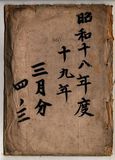 昭和十八年度
十九年
三月分
四、三